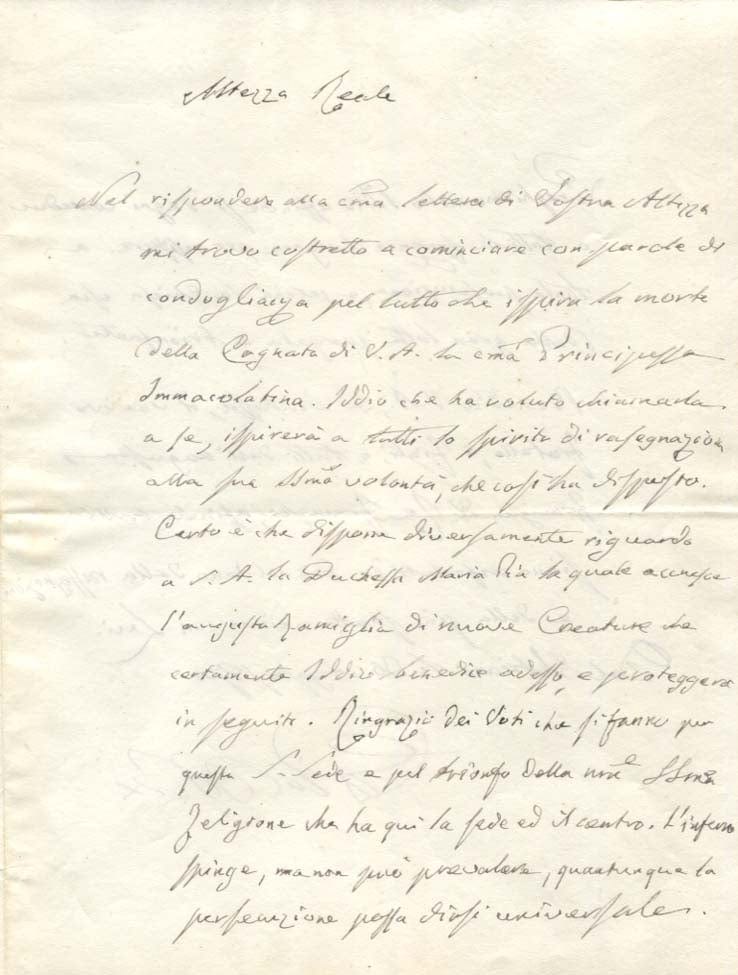 Altezza Reale
Nel rispondere alla cma lettera di Vostra Altezza
mi trovo costretto a cominciare con parole di
condoglianza pel lutto che ispira la morte
della Cognata di V. A. la cma Principessa
Immacolatina. Iddio che ha voluto chiamarla
a se, ispirerà a tutti lo spirito di rasegnazione
alla sua SSma volontà, che così ha disposto.
Certo è che dispone diversamente riguardo
a S. A. la Duchessa Maria Pia la quale accresce
l'augusta Famiglia di nuove Creature che
certamente Iddio benedice adesso, e proteggerà
in seguito. Ringrazio dei Voti che si fanno per
questa S. Sede e pel trionfo della SSma
Religione che ha qui la sede ed il centro. L'inferno
spinge, ma non può prevalere, quantunque la
persecuzione possa dirsi universale.